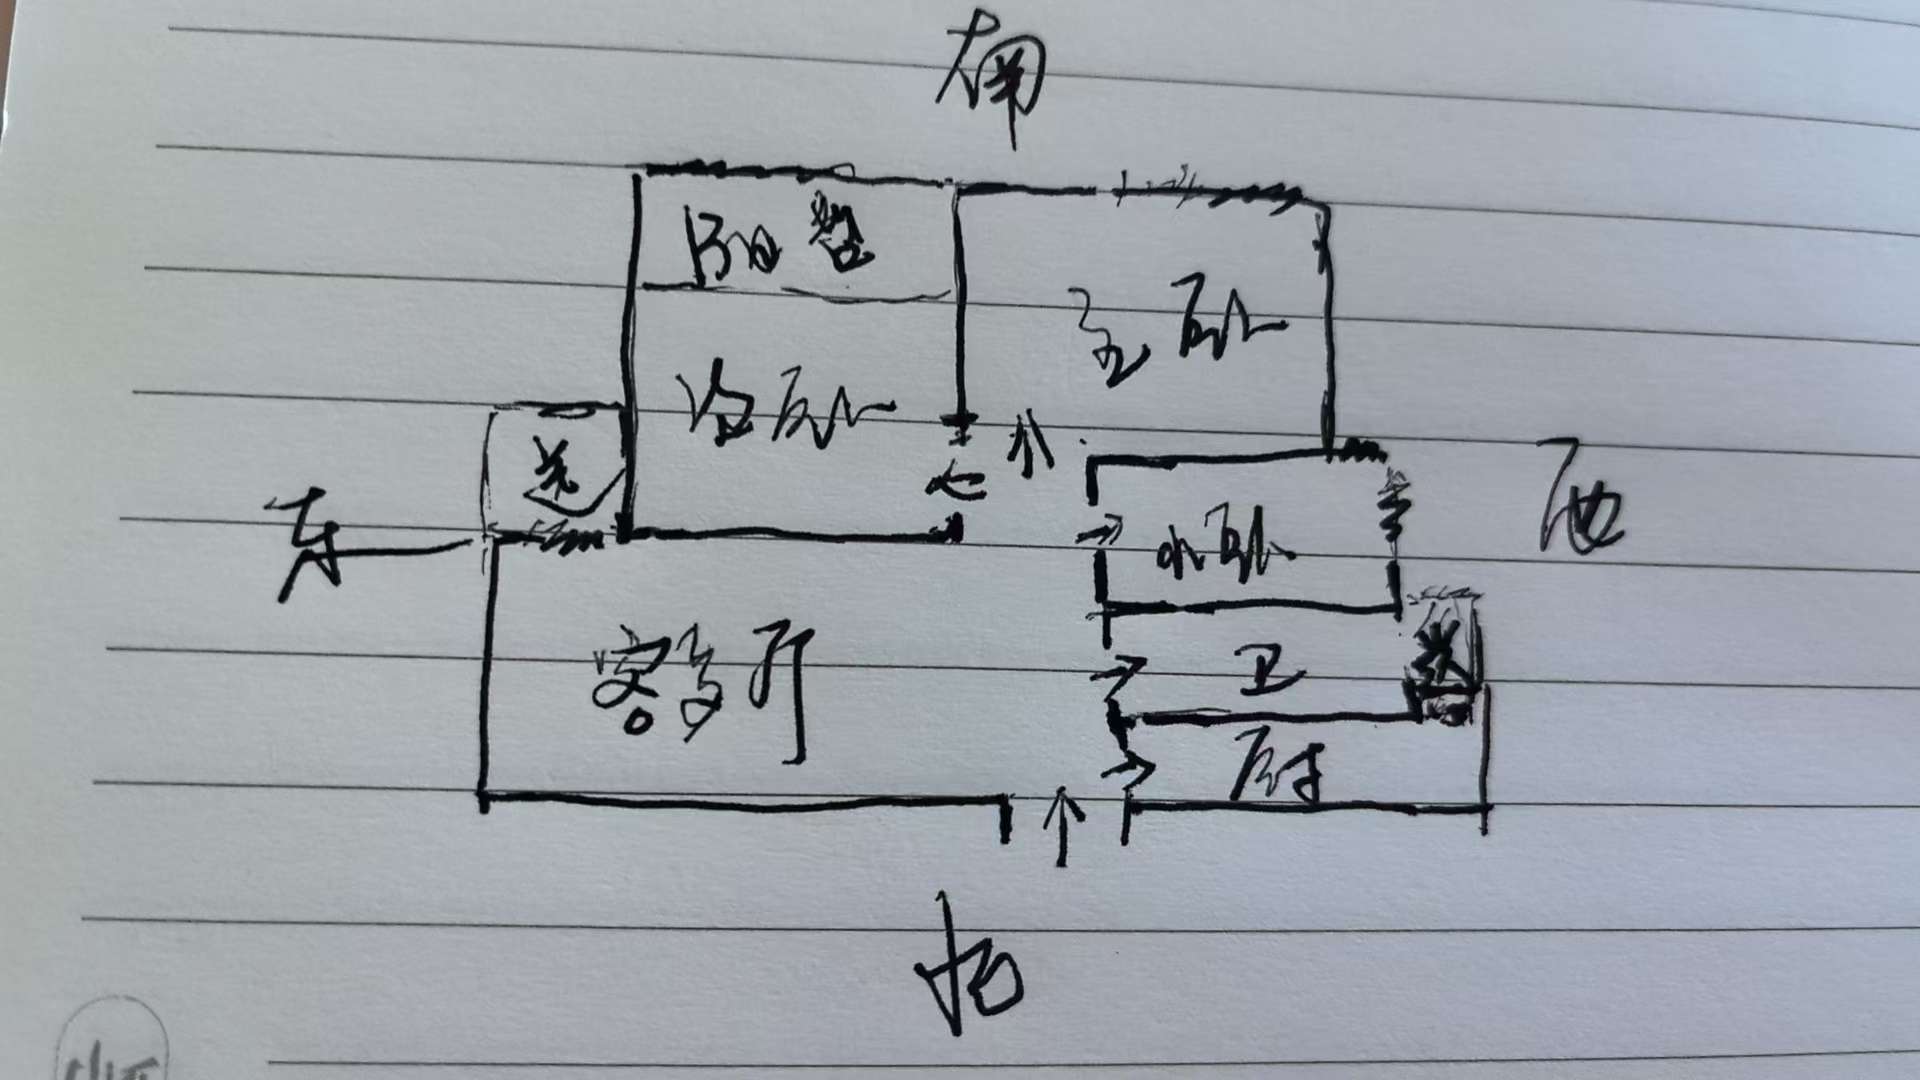 南
阳台
主卧
次卧
送
东
西
小卧
客餐厅
卫
送
厨
北